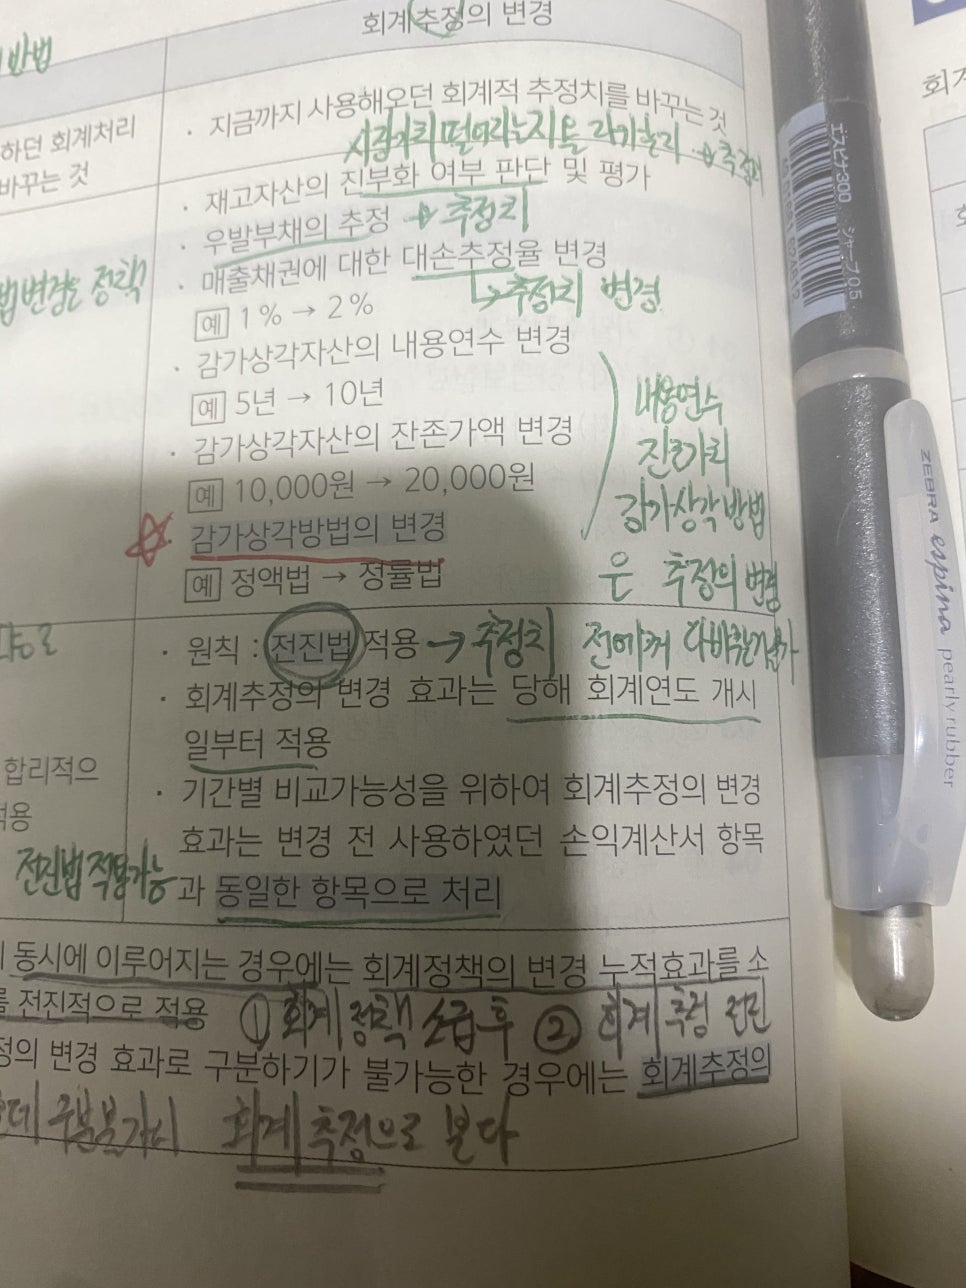 회계추정의 변경
방법
하던 회계처리
바꾸는 것
· 지금까지 사용해오던 회계적 추정치를 바꾸는 것
· 재고자산의 진부화 여부 판단 및 평가
· 우발부채의 추정 → 추정치
· 매출채권에 대한 대손추정율 변경
→ 추정치 변경
예 1% → 2%
· 감가상각자산의 내용연수 변경
예 5년 → 10년
· 감가상각자산의 잔존가액 변경
예 10,000원 → 20,000원
감가상각방법의 변경
예 정액법 → 정률법
내용연수
감가상각방법
은 추정의 변경
· 원칙 : 전진법 적용 → 추정치
· 회계추정의 변경 효과는 당해 회계연도 개시
일부터 적용
합리적으
적용
· 기간별 비교가능성을 위하여 회계추정의 변경
효과는 변경 전 사용하였던 손익계산서 항목
과 동일한 항목으로 처리
전진법 적용가능
동시에 이루어지는 경우에는 회계정책의 변경 누적효과를 소
를 전진적으로 적용
① 회계정책 소급 후 ② 회계추정 전진
정의 변경 효과로 구분하기가 불가능한 경우에는 회계추정의
회계추정으로 본다
회계
エスピナ300 シャープ0.5
ZEBRA espina pearly rubber